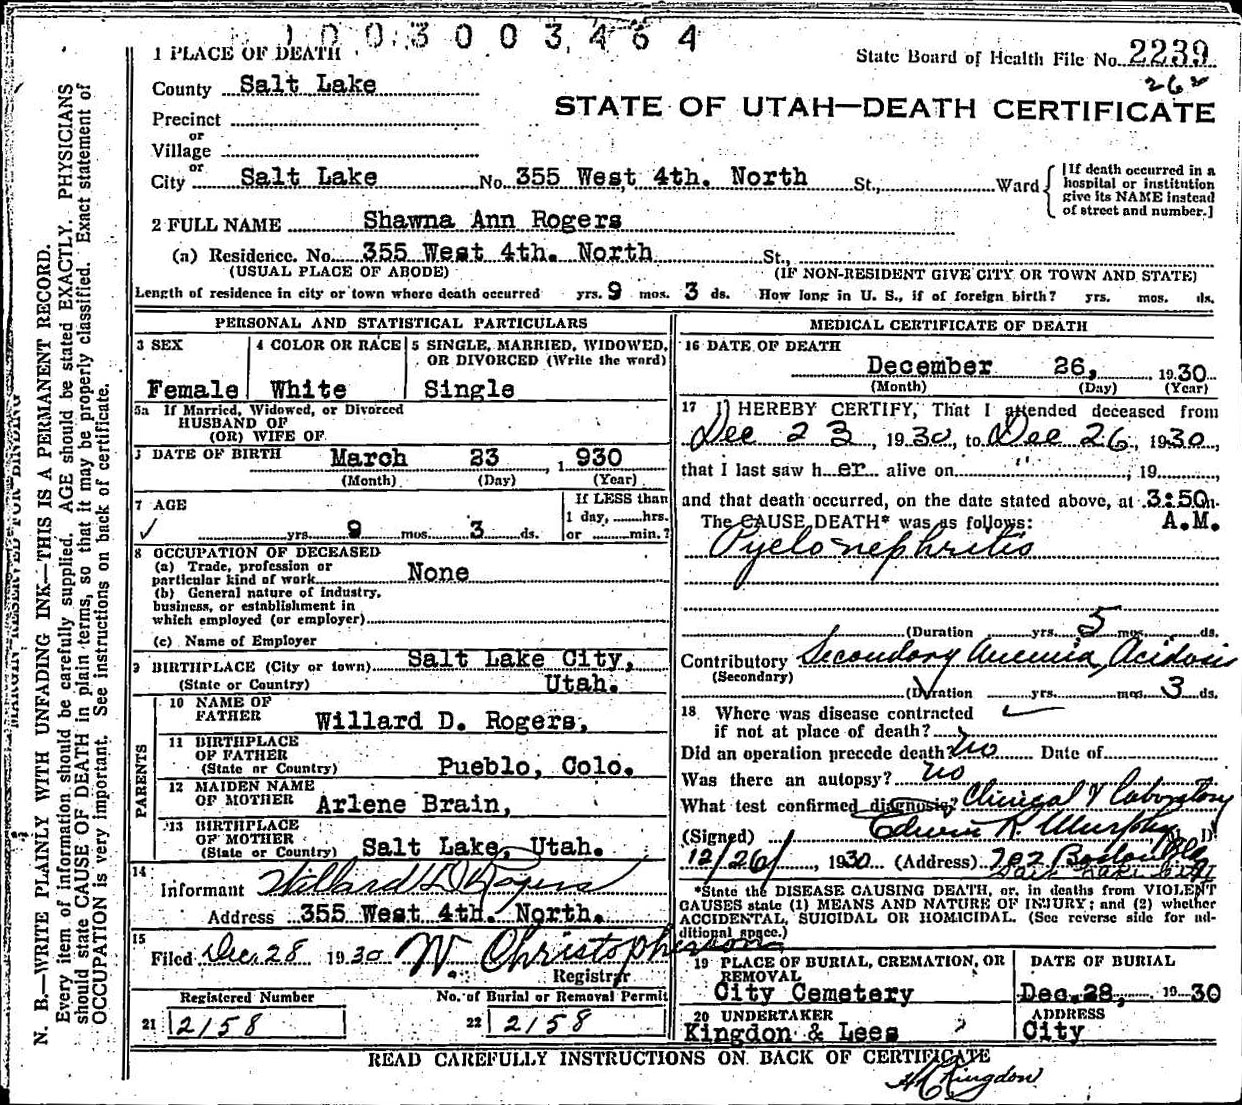 1003003464
1 PLACE OF DEATH
State Board of Health File No. 2239
262
County Salt Lake
STATE OF UTAH—DEATH CERTIFICATE
Precinct
or
Village
or
City Salt Lake No. 355 West 4th. North St., Ward
[If death occurred in a hospital or institution give its NAME instead of street and number.]
2 FULL NAME Shawna Ann Rogers
(a) Residence. No. 355 West 4th. North St.,
(USUAL PLACE OF ABODE) (IF NON-RESIDENT GIVE CITY OR TOWN AND STATE)
Length of residence in city or town where death occurred yrs. 9 mos. 3 ds. How long in U. S., if of foreign birth? yrs. mos. ds.
PERSONAL AND STATISTICAL PARTICULARS
3 SEX 4 COLOR OR RACE 5 SINGLE, MARRIED, WIDOWED,
OR DIVORCED (Write the word)
Female White Single
5a If Married, Widowed, or Divorced
HUSBAND OF
(OR) WIFE OF
DATE OF BIRTH March 23, 1930
(Month) (Day) (Year)
7 AGE
If LESS than
1 day, hrs.
yrs. 9 mos. 3 ds. or min.?
8 OCCUPATION OF DECEASED
(a) Trade, profession or
particular kind of work None
(b) General nature of industry,
business, or establishment in
which employed (or employer)
(c) Name of Employer
9 BIRTHPLACE (City or town) Salt Lake City,
(State or Country) Utah.
PARENTS
10 NAME OF
FATHER Willard D. Rogers,
11 BIRTHPLACE
OF FATHER
(State or Country) Pueblo, Colo.
12 MAIDEN NAME
OF MOTHER Arlene Brain,
13 BIRTHPLACE
OF MOTHER
(State or Country) Salt Lake, Utah.
14
Informant Willard D Rogers
Address 355 West 4th. North.
15
Filed Dec. 28 1930 W Christopherson
Registrar
Registered Number No. of Burial or Removal Permit
21 2158 22 2158
MEDICAL CERTIFICATE OF DEATH
16 DATE OF DEATH
December 26, 1930
(Month) (Day) (Year)
17 I HEREBY CERTIFY, That I attended deceased from
Dec 23, 1930, to Dec 26, 1930,
that I last saw her alive on " , 19
and that death occurred, on the date stated above, at 3:50 m.
The CAUSE DEATH* was as follows: A.M.
Pyelonephritis
(Duration yrs. 5 mos. ds.
Contributory Secondary Anemia, Acidosis
(Secondary)
(Duration yrs. mos. 3 ds.
18 Where was disease contracted
if not at place of death?
Did an operation precede death? No Date of
Was there an autopsy? no
What test confirmed diagnosis? Clinical & laboratory
(Signed) Edwin R. Murphy M. D.
12/26/, 1930 (Address) 702 Boston Bldg
Salt Lake City
*State the DISEASE CAUSING DEATH, or, in deaths from VIOLENT
CAUSES state (1) MEANS AND NATURE OF INJURY; and (2) whether
ACCIDENTAL, SUICIDAL OR HOMICIDAL. (See reverse side for ad-
ditional space.)
19 PLACE OF BURIAL, CREMATION, OR
REMOVAL
City Cemetery
DATE OF BURIAL
Dec. 28, 1930
20 UNDERTAKER
Kingdon & Lees
ADDRESS
City
READ CAREFULLY INSTRUCTIONS ON BACK OF CERTIFICATE
Kingdon
MARGIN RESERVED FOR BINDING
N. B.—WRITE PLAINLY WITH UNFADING INK—THIS IS A PERMANENT RECORD.
Every item of information should be carefully supplied. AGE should be stated EXACTLY. PHYSICIANS
should state CAUSE OF DEATH in plain terms, so that it may be properly classified. Exact statement of
OCCUPATION is very important. See instructions on back of certificate.